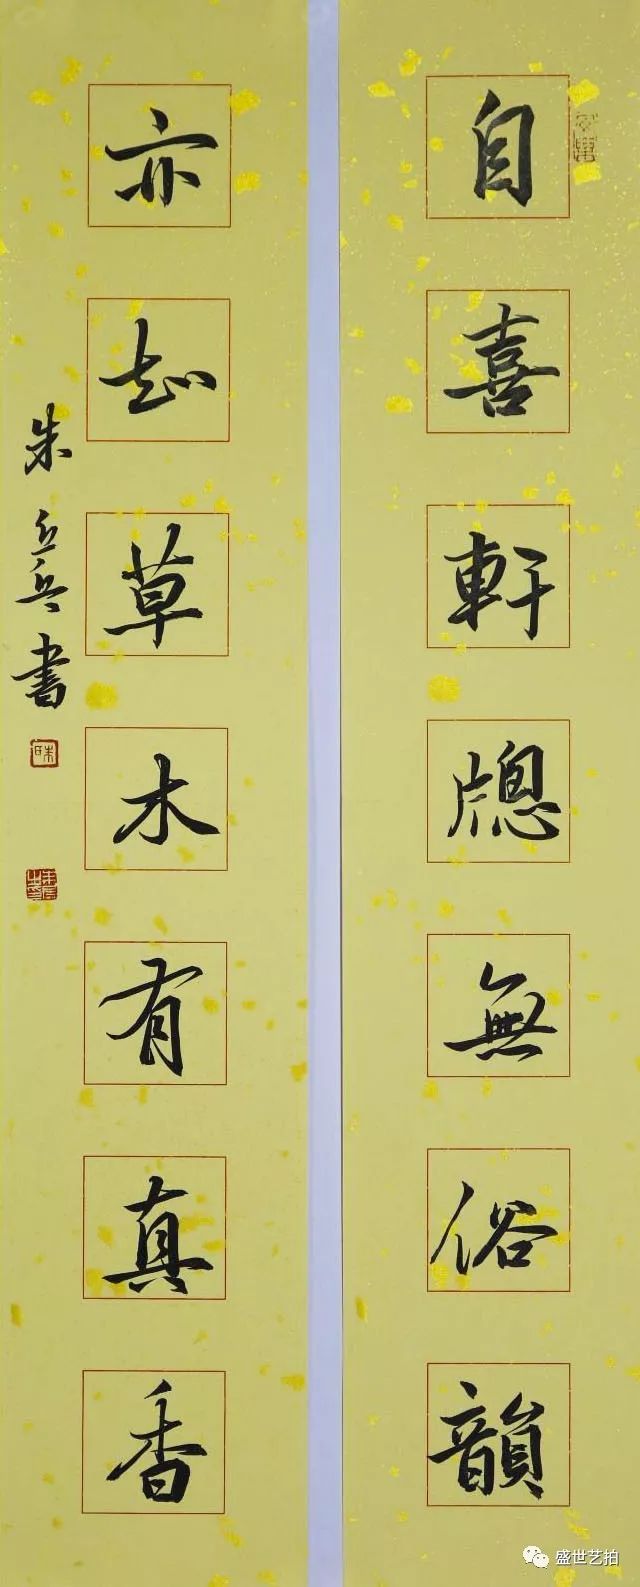 自喜軒牕無俗韻
亦知草木有真香
朱兵兵書
盛世艺拍